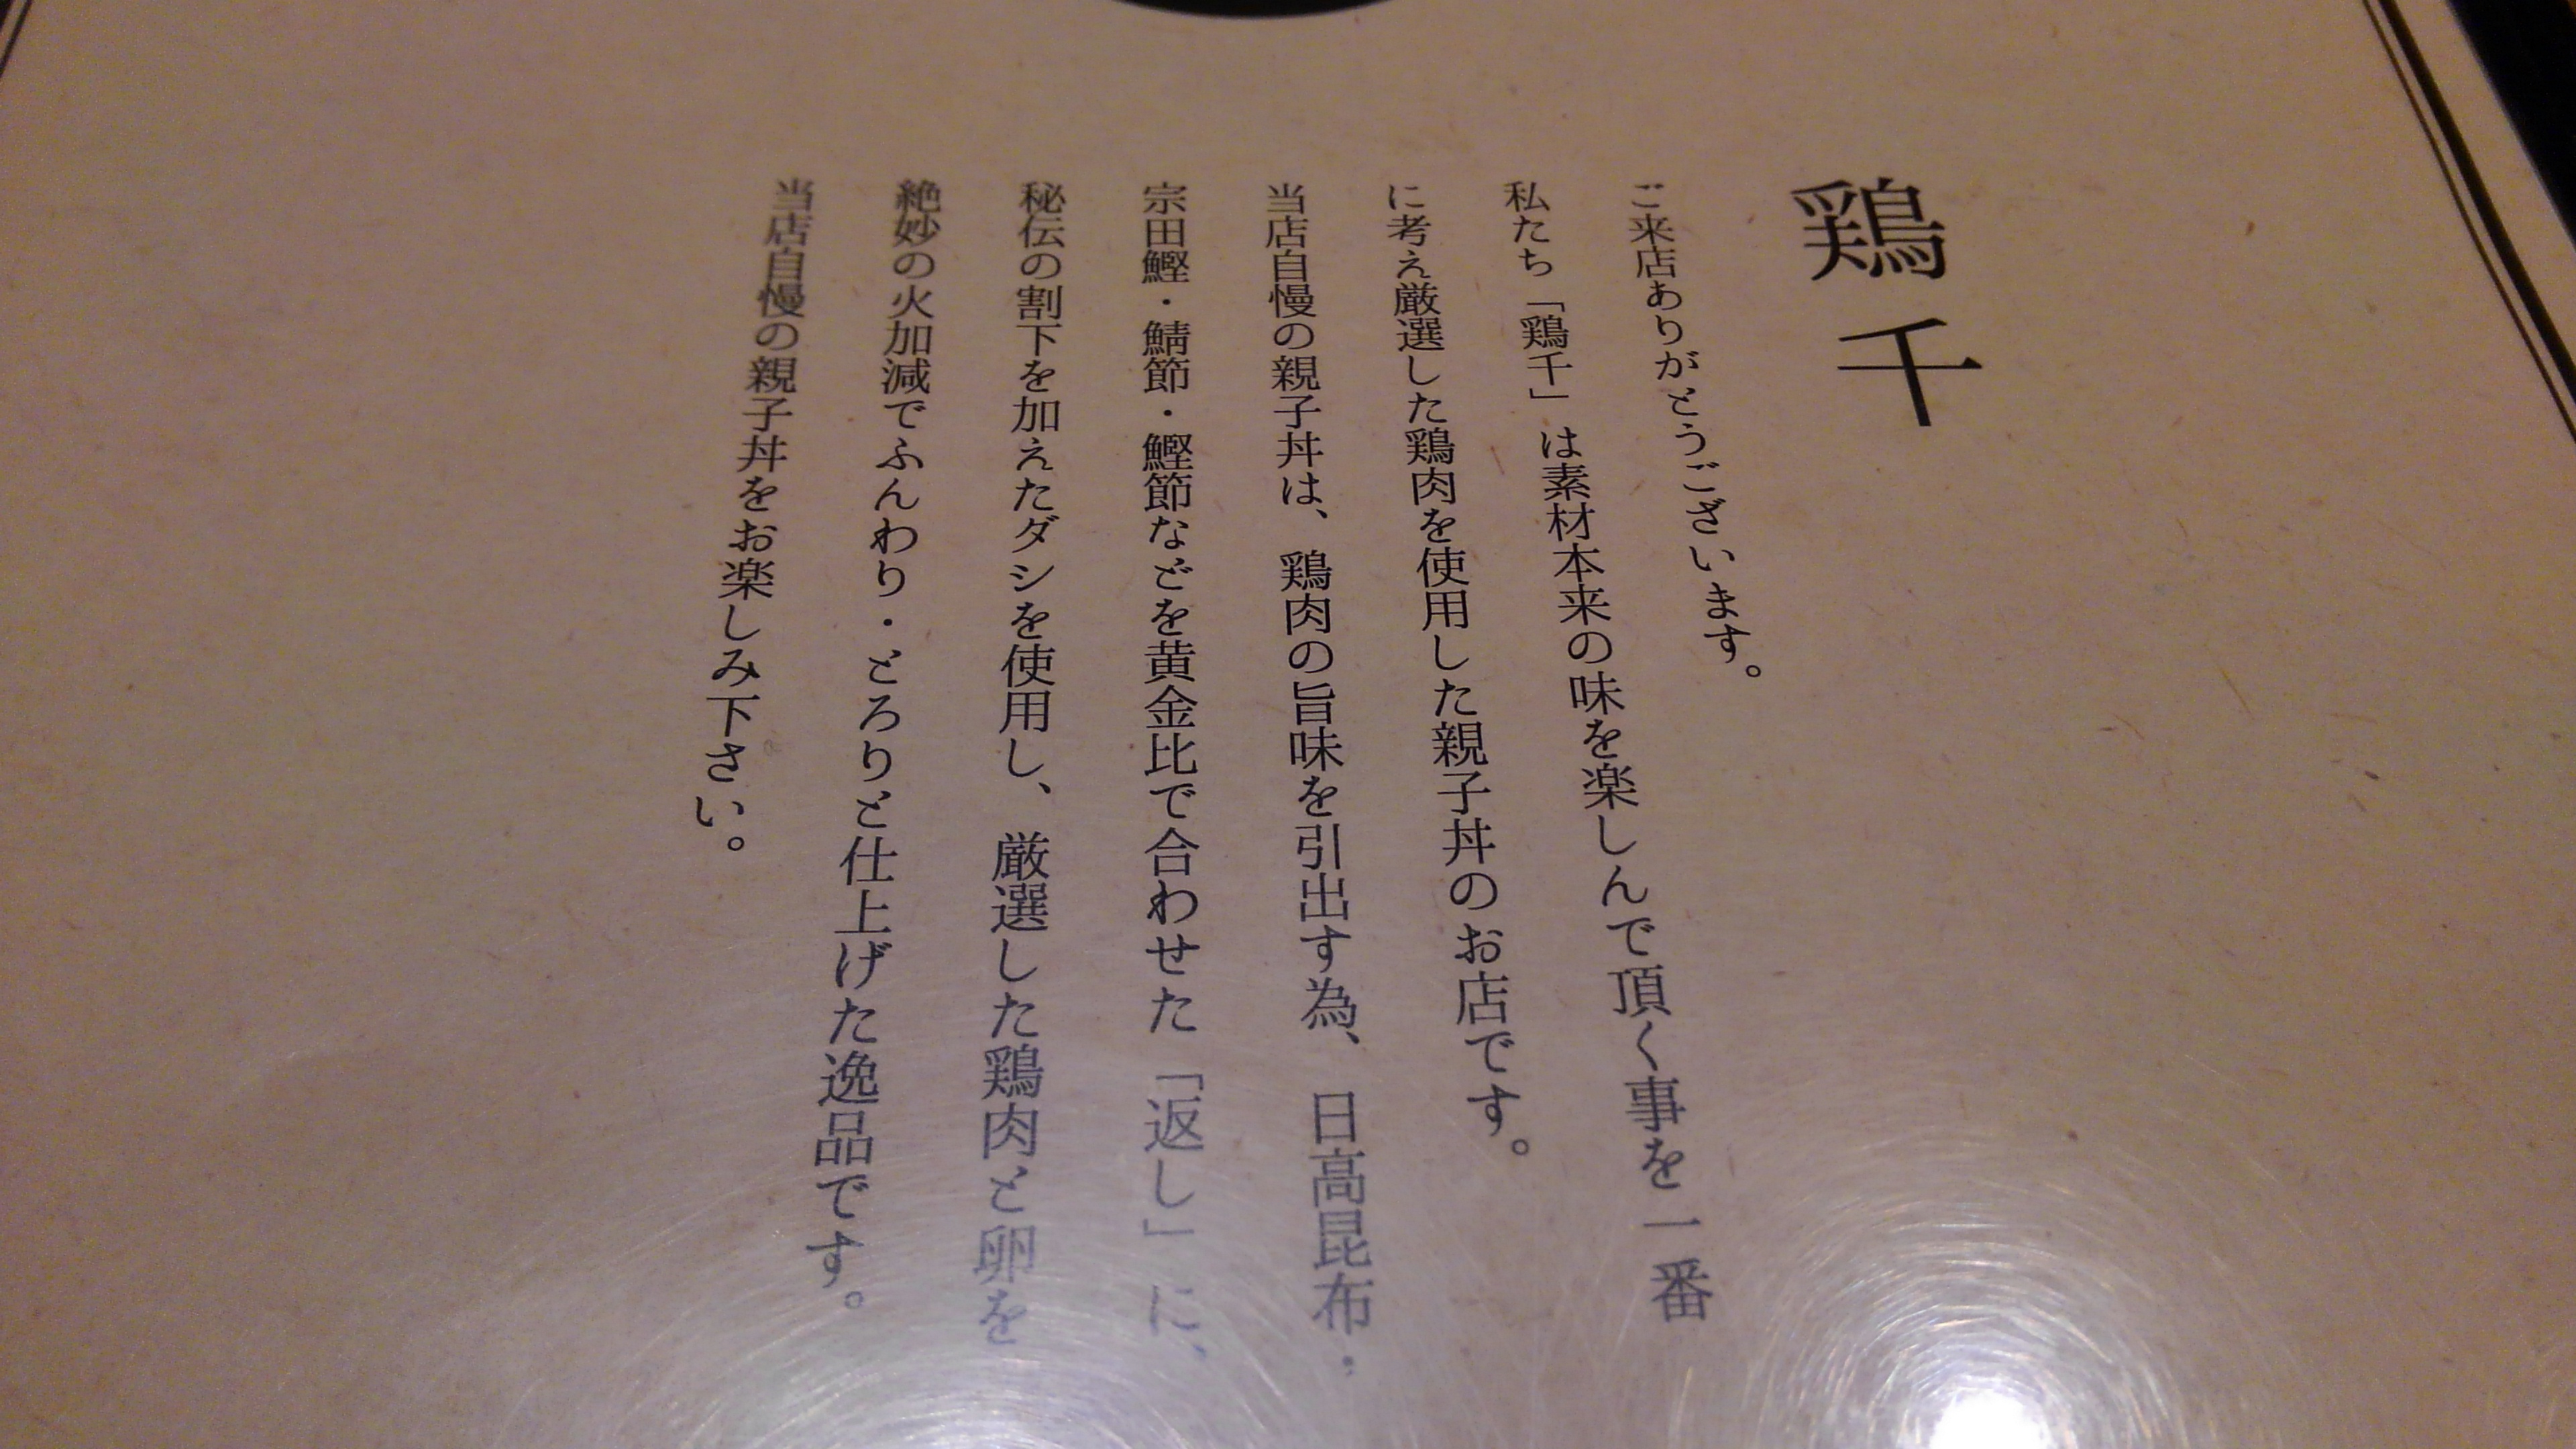 鶏千
ご来店ありがとうございます。
私たち「鶏千」は素材本来の味を楽しんで頂く事を一番
に考え厳選した鶏肉を使用した親子丼のお店です。
当店自慢の親子丼は、鶏肉の旨味を引出す為、日高昆布・
宗田鰹・鯖節・鰹節などを黄金比で合わせた「返し」に、
秘伝の割下を加えたダシを使用し、厳選した鶏肉と卵を
絶妙の火加減でふんわり・とろりと仕上げた逸品です。
当店自慢の親子丼をお楽しみ下さい。